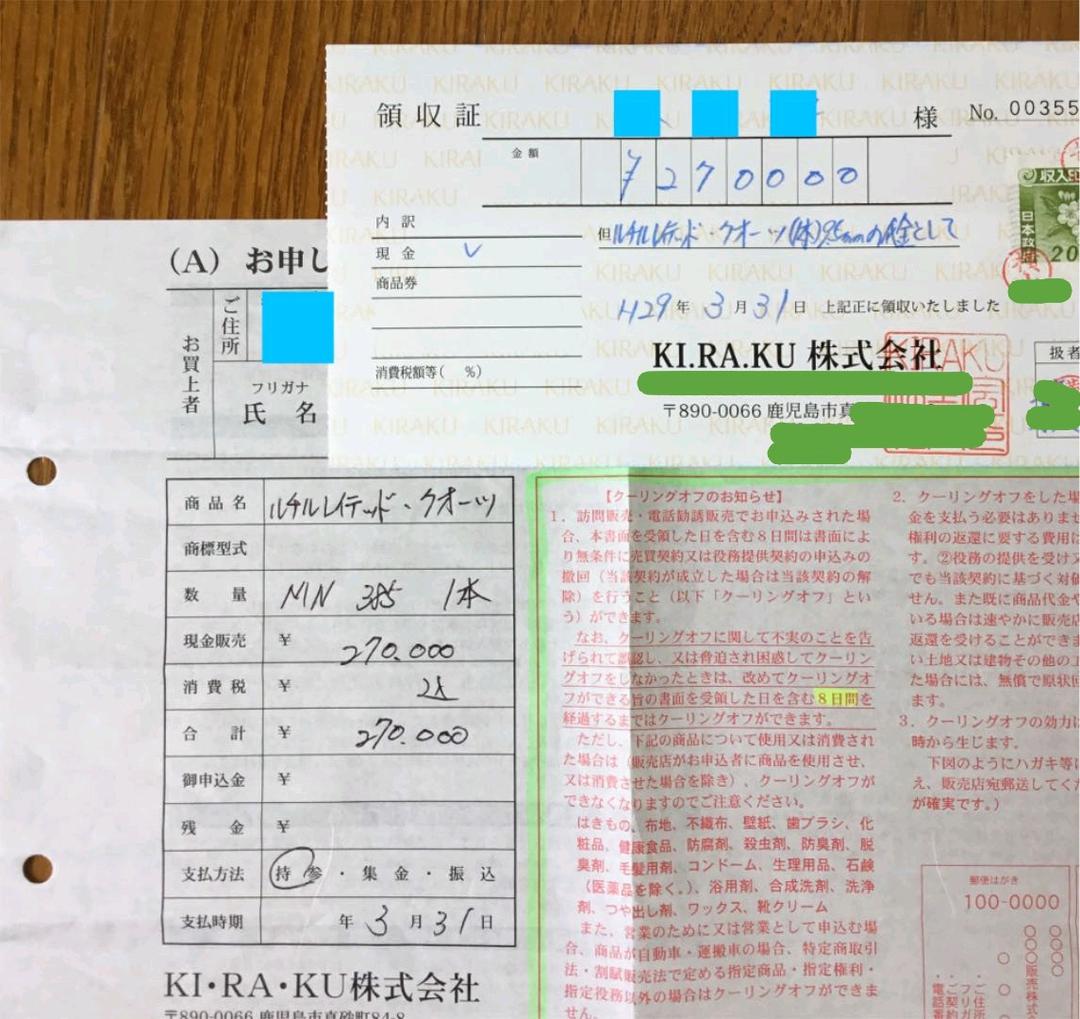 領収証
様
No. 00355
金額
¥270000
内訳
現金 ✓
商品券
消費税額等( %)
但ルチルレイテッド・クオーツ(体)9.5mmの代金として
H29年3月31日 上記正に領収いたしました
KI.RA.KU 株式会社
〒890-0066 鹿児島市真
扱者
収入印
日本政
20
(A) お申し
お買上者
ご住所
フリガナ
氏名
商品名 ルチルレイテッド・クオーツ
商標型式
数量 MN 385 1本
現金販売 ¥270.000
消費税 ¥
合計 ¥270.000
御申込金 ¥
残金 ¥
支払方法 持参・集金・振込
支払時期 年3月31日
KI・RA・KU株式会社
〒890-0066 鹿児島市真砂町84-8
【クーリングオフのお知らせ】
1. 訪問販売・電話勧誘販売でお申込みされた場
合、本書面を受領した日を含む8日間は書面によ
り無条件に売買契約又は役務提供契約の申込みの
撤回(当該契約が成立した場合は当該契約の解
除)を行うこと(以下「クーリングオフ」とい
う)ができます。
なお、クーリングオフに関して不実のことを告
げられて誤認し、又は脅迫され困惑してクーリン
グオフをしなかったときは、改めてクーリングオ
フができる旨の書面を受領した日を含む8日間を
経過するまではクーリングオフができます。
ただし、下記の商品について使用又は消費され
た場合は(販売店がお申込者に商品を使用させ、
又は消費させた場合を除き)、クーリングオフが
できなくなりますのでご注意ください。
はきもの、布地、不織布、壁紙、歯ブラシ、化
粧品、健康食品、防腐剤、殺虫剤、防臭剤、脱
臭剤、毛髪用剤、コンドーム、生理用品、石鹸
(医薬品を除く。)、浴用剤、合成洗剤、洗浄
剤、つや出し剤、ワックス、靴クリーム
また、営業のために又は営業として申込む場
合、商品が自動車・運搬車の場合、特定商取引
法・割賦販売法で定める指定商品・指定権利・
指定役務以外の場合はクーリングオフができま
せん。
2. クーリングオフをした場
金を支払う必要はありませ
権利の返還に要する費用は
す。②役務の提供を受け又
でも当該契約に基づく対価
せん。また既に商品代金や
いる場合は速やかに販売店
返還を受けることができま
い土地又は建物その他の工
た場合には、無償で原状回
ます。
3. クーリングオフの効力は
時から生じます。
下図のようにハガキ等に
え、販売店宛郵送してくだ
が確実です。)
郵便はがき
100-0000